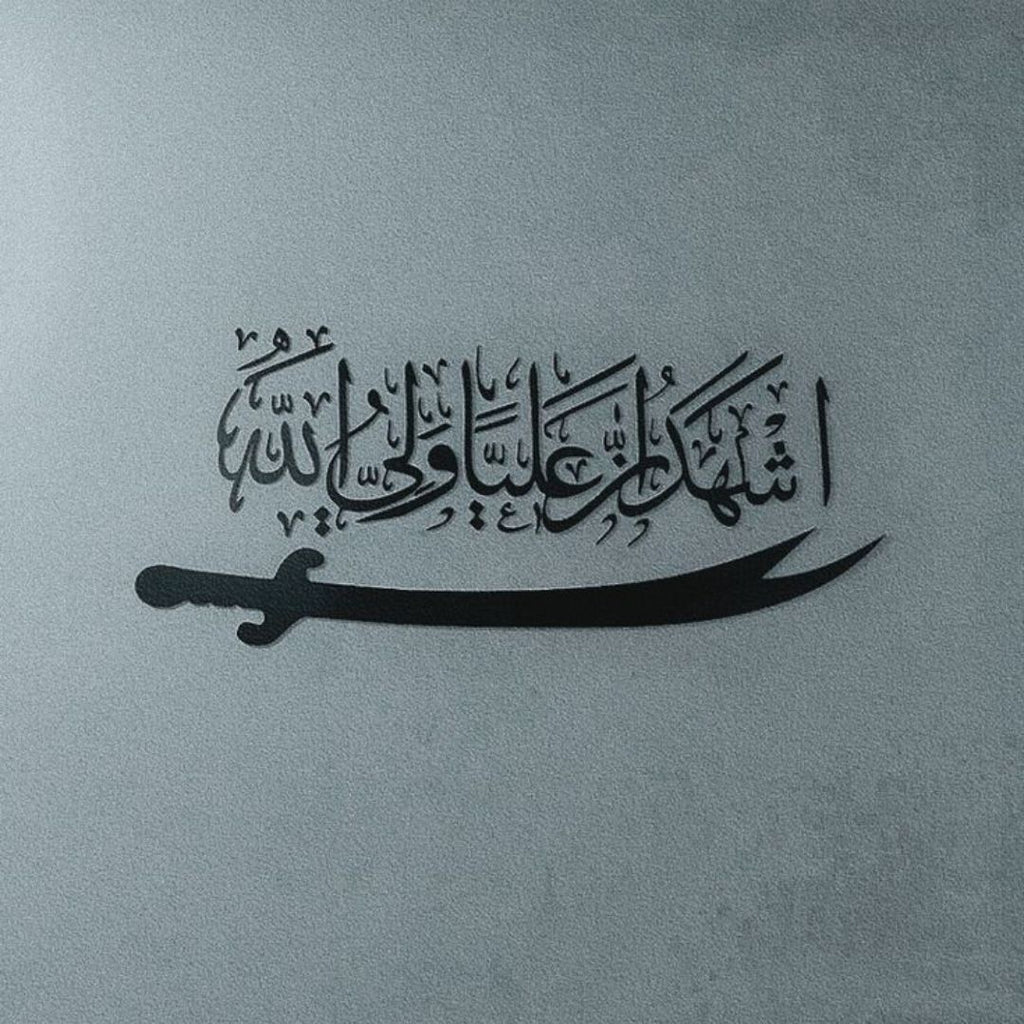 اشهد ان عليًا ولي الله